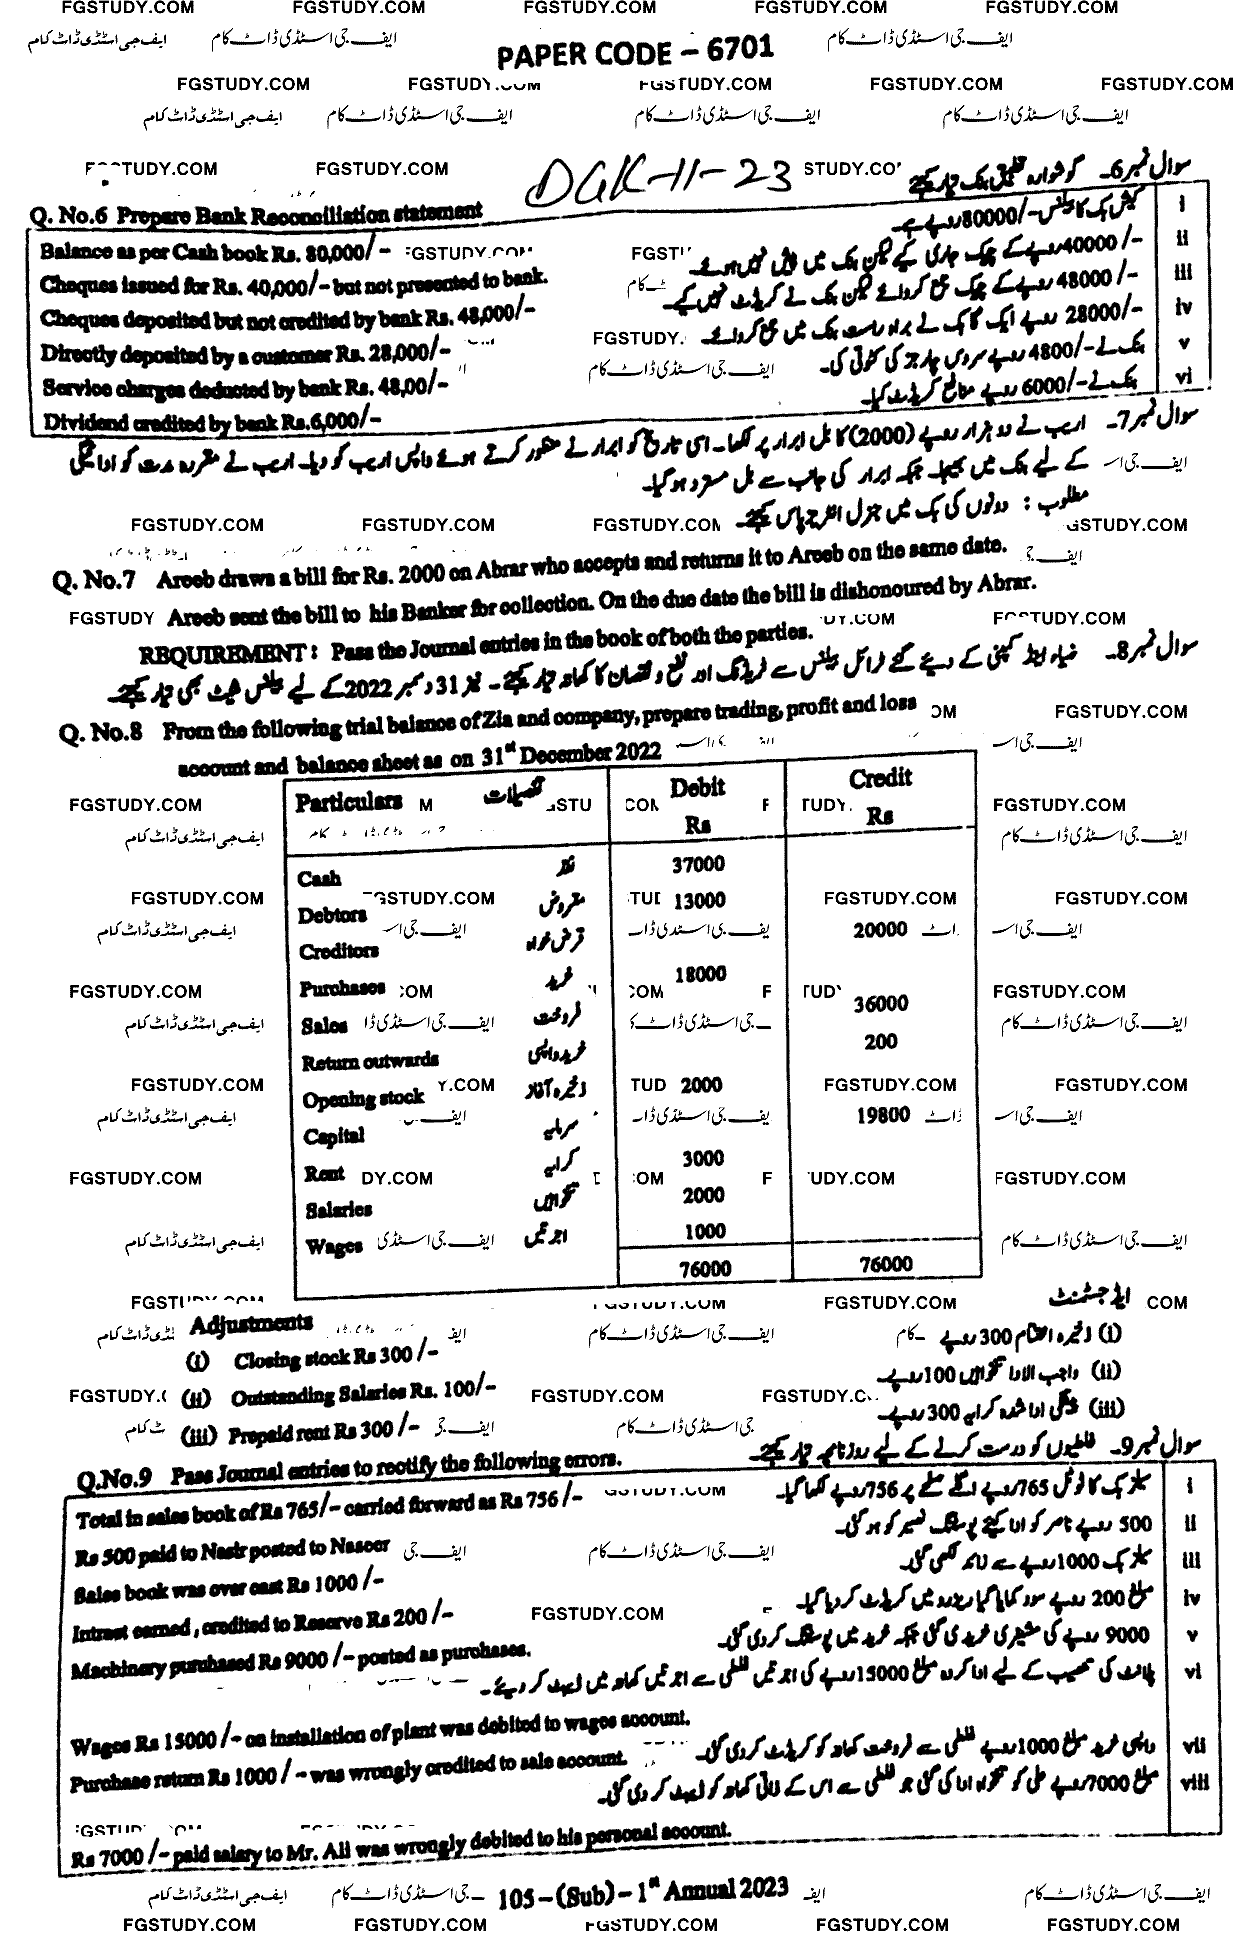 PAPER CODE – 6701
DGK-11-23
سوال نمبر6۔ گوشوارہ تطبیق بنک تیار کیجئے
Q. No.6 Prepare Bank Reconciliation statement
Balance as per Cash book Rs. 80,000/-
کیش بک کا بیلنس -/80000روپے ہے۔ i
Cheques issued for Rs. 40,000/- but not presented to bank.
-/40000روپے کے چیک جاری کیے لیکن بنک میں پیش نہیں ہوئے۔ ii
Cheques deposited but not credited by bank Rs. 48,000/-
-/48000 روپے کے چیک جمع کروائے لیکن بنک نے کریڈٹ نہیں کیے۔ iii
Directly deposited by a customer Rs. 28,000/-
-/28000 روپے ایک گاہک نے براہ راست بنک میں جمع کروائے۔ iv
Service charges deducted by bank Rs. 48,00/-
بنک نے -/4800 روپے سروس چارجز کی کٹوتی کی۔ v
Dividend credited by bank Rs.6,000/-
بنک نے -/6000 روپے منافع کریڈٹ کیا۔ vi
سوال نمبر7۔ اریب نے دو ہزار روپے (2000) کا بل ابرار پر لکھا۔ اسی تاریخ کو ابرار نے منظور کرتے ہوئے واپس اریب کو دیا۔ اریب نے مقررہ مدت کو ادائیگی
کے لیے بنک میں بھیجا۔ جبکہ ابرار کی جانب سے بل مسترد ہو گیا۔
مطلوب : دونوں کی بک میں جنرل انٹریز پاس کیجئے۔
Q. No.7 Areeb draws a bill for Rs. 2000 on Abrar who accepts and returns it to Areeb on the same date.
Areeb sent the bill to his Banker for collection. On the due date the bill is dishonoured by Abrar.
REQUIREMENT : Pass the Journal entries in the book of both the parties.
سوال نمبر8۔ ضیاء اینڈ کمپنی کے دیئے گئے ٹرائل بیلنس سے ٹریڈنگ اور نفع و نقصان کا کھاتہ تیار کیجئے۔ نیز 31 دسمبر 2022 کے لیے بیلنس شیٹ بھی تیار کیجئے۔
Q. No.8 From the following trial balance of Zia and company, prepare trading, profit and loss
account and balance sheet as on 31st December 2022
Particulars تفصیلات Debit Rs Credit Rs
Cash نقد 37000
Debtors مقروض 13000
Creditors قرض خواہ 20000
Purchases خرید 18000
Sales فروخت 36000
Return outwards خرید واپسی 200
Opening stock ذخیرہ آغاز 2000
Capital سرمایہ 19800
Rent کرایہ 3000
Salaries تنخواہیں 2000
Wages اجرتیں 1000
76000 76000
Adjustments ایڈجسٹمنٹ
(i) Closing stock Rs 300 /- (i) ذخیرہ اختتام 300 روپے
(ii) Outstanding Salaries Rs. 100/- (ii) واجب الادا تنخواہیں 100 روپے۔
(iii) Prepaid rent Rs 300 /- (iii) پیشگی ادا شدہ کرایہ 300 روپے۔
سوال نمبر9۔ غلطیوں کو درست کرنے کے لیے روزنامچہ تیار کیجئے۔
Q.No.9 Pass Journal entries to rectify the following errors.
Total in sales book of Rs 765/- carried forward as Rs 756 /-
سیلز بک کا ٹوٹل 765 روپے اگلے صفحے پر 756 روپے لکھا گیا۔ i
Rs 500 paid to Nasir posted to Naseer
500 روپے ناصر کو ادا کیے پوسٹنگ نصیر کو ہو گئی۔ ii
Sales book was over cast Rs 1000 /-
سیلز بک 1000 روپے سے زائد لکھی گئی۔ iii
Intrest earned , credited to Reserve Rs 200 /-
مبلغ 200 روپے سود کمایا گیا ریزرو میں کریڈٹ کر دیا گیا۔ iv
Machinery purchased Rs 9000 /- posted as purchases.
9000 روپے کی مشینری خریدی گئی جبکہ خرید میں پوسٹنگ کر دی گئی۔ v
پلانٹ کی تنصیب کے لیے ادا کردہ مبلغ 15000 روپے کی اجرتیں غلطی سے اجرتیں کھاتہ میں ڈیبٹ کر دیئے۔ vi
Wages Rs 15000 /- on installation of plant was debited to wages account.
Purchase return Rs 1000 / - was wrongly credited to sale account.
واپسی خرید مبلغ 1000 روپے غلطی سے فروخت کھاتہ کو کریڈٹ کر دی گئی۔ vii
مبلغ 7000 روپے علی کو تنخواہ ادا کی گئی جو غلطی سے اس کے ذاتی کھاتہ کو ڈیبٹ کر دی گئی۔ viii
Rs 7000 /- paid salary to Mr. Ali was wrongly debited to his personal account.
105 – (Sub) – 1st Annual 2023
FGSTUDY.COM
ایف جی اسٹڈی ڈاٹ کام